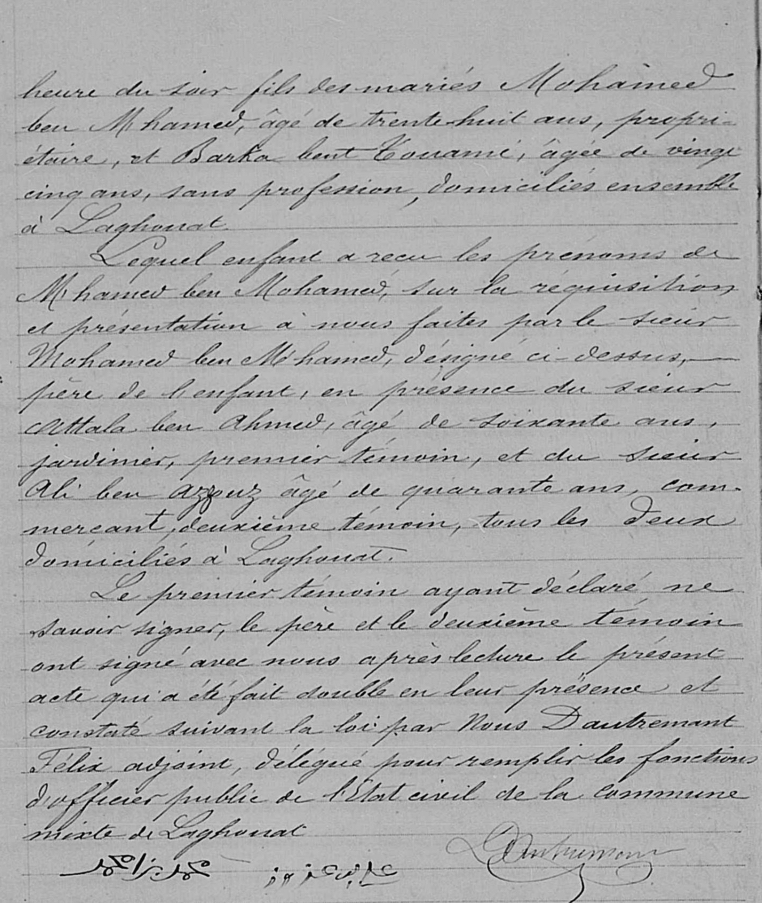 heure du soir fils des mariés Mohamed
ben M'hamed, âgé de trente huit ans, propri-
étaire, et Barka bent Touami, âgée de vingt
cinq ans, sans profession, domiciliés ensemble
à Laghouat.
Lequel enfant a reçu les prénoms de
M'hamed ben Mohamed, sur la réquisition
et présentation à nous faites par le sieur
Mohamed ben M'hamed, désigné ci-dessus,
père de l'enfant, en présence du sieur
Attala ben Ahmed, âgé de soixante ans,
jardinier, premier témoin, et du sieur
Ali ben Azzouz âgé de quarante ans, com-
merçant, deuxième témoin, tous les deux
domiciliés à Laghouat.
Le premier témoin ayant déclaré ne
savoir signer, le père et le deuxième témoin
ont signé avec nous après lecture le présent
acte qui a été fait double en leur présence et
constaté suivant la loi par Nous Dautremant
Félix adjoint, délégué pour remplir les fonctions
d'officier public de l'Etat civil de la commune
mixte de Laghouat